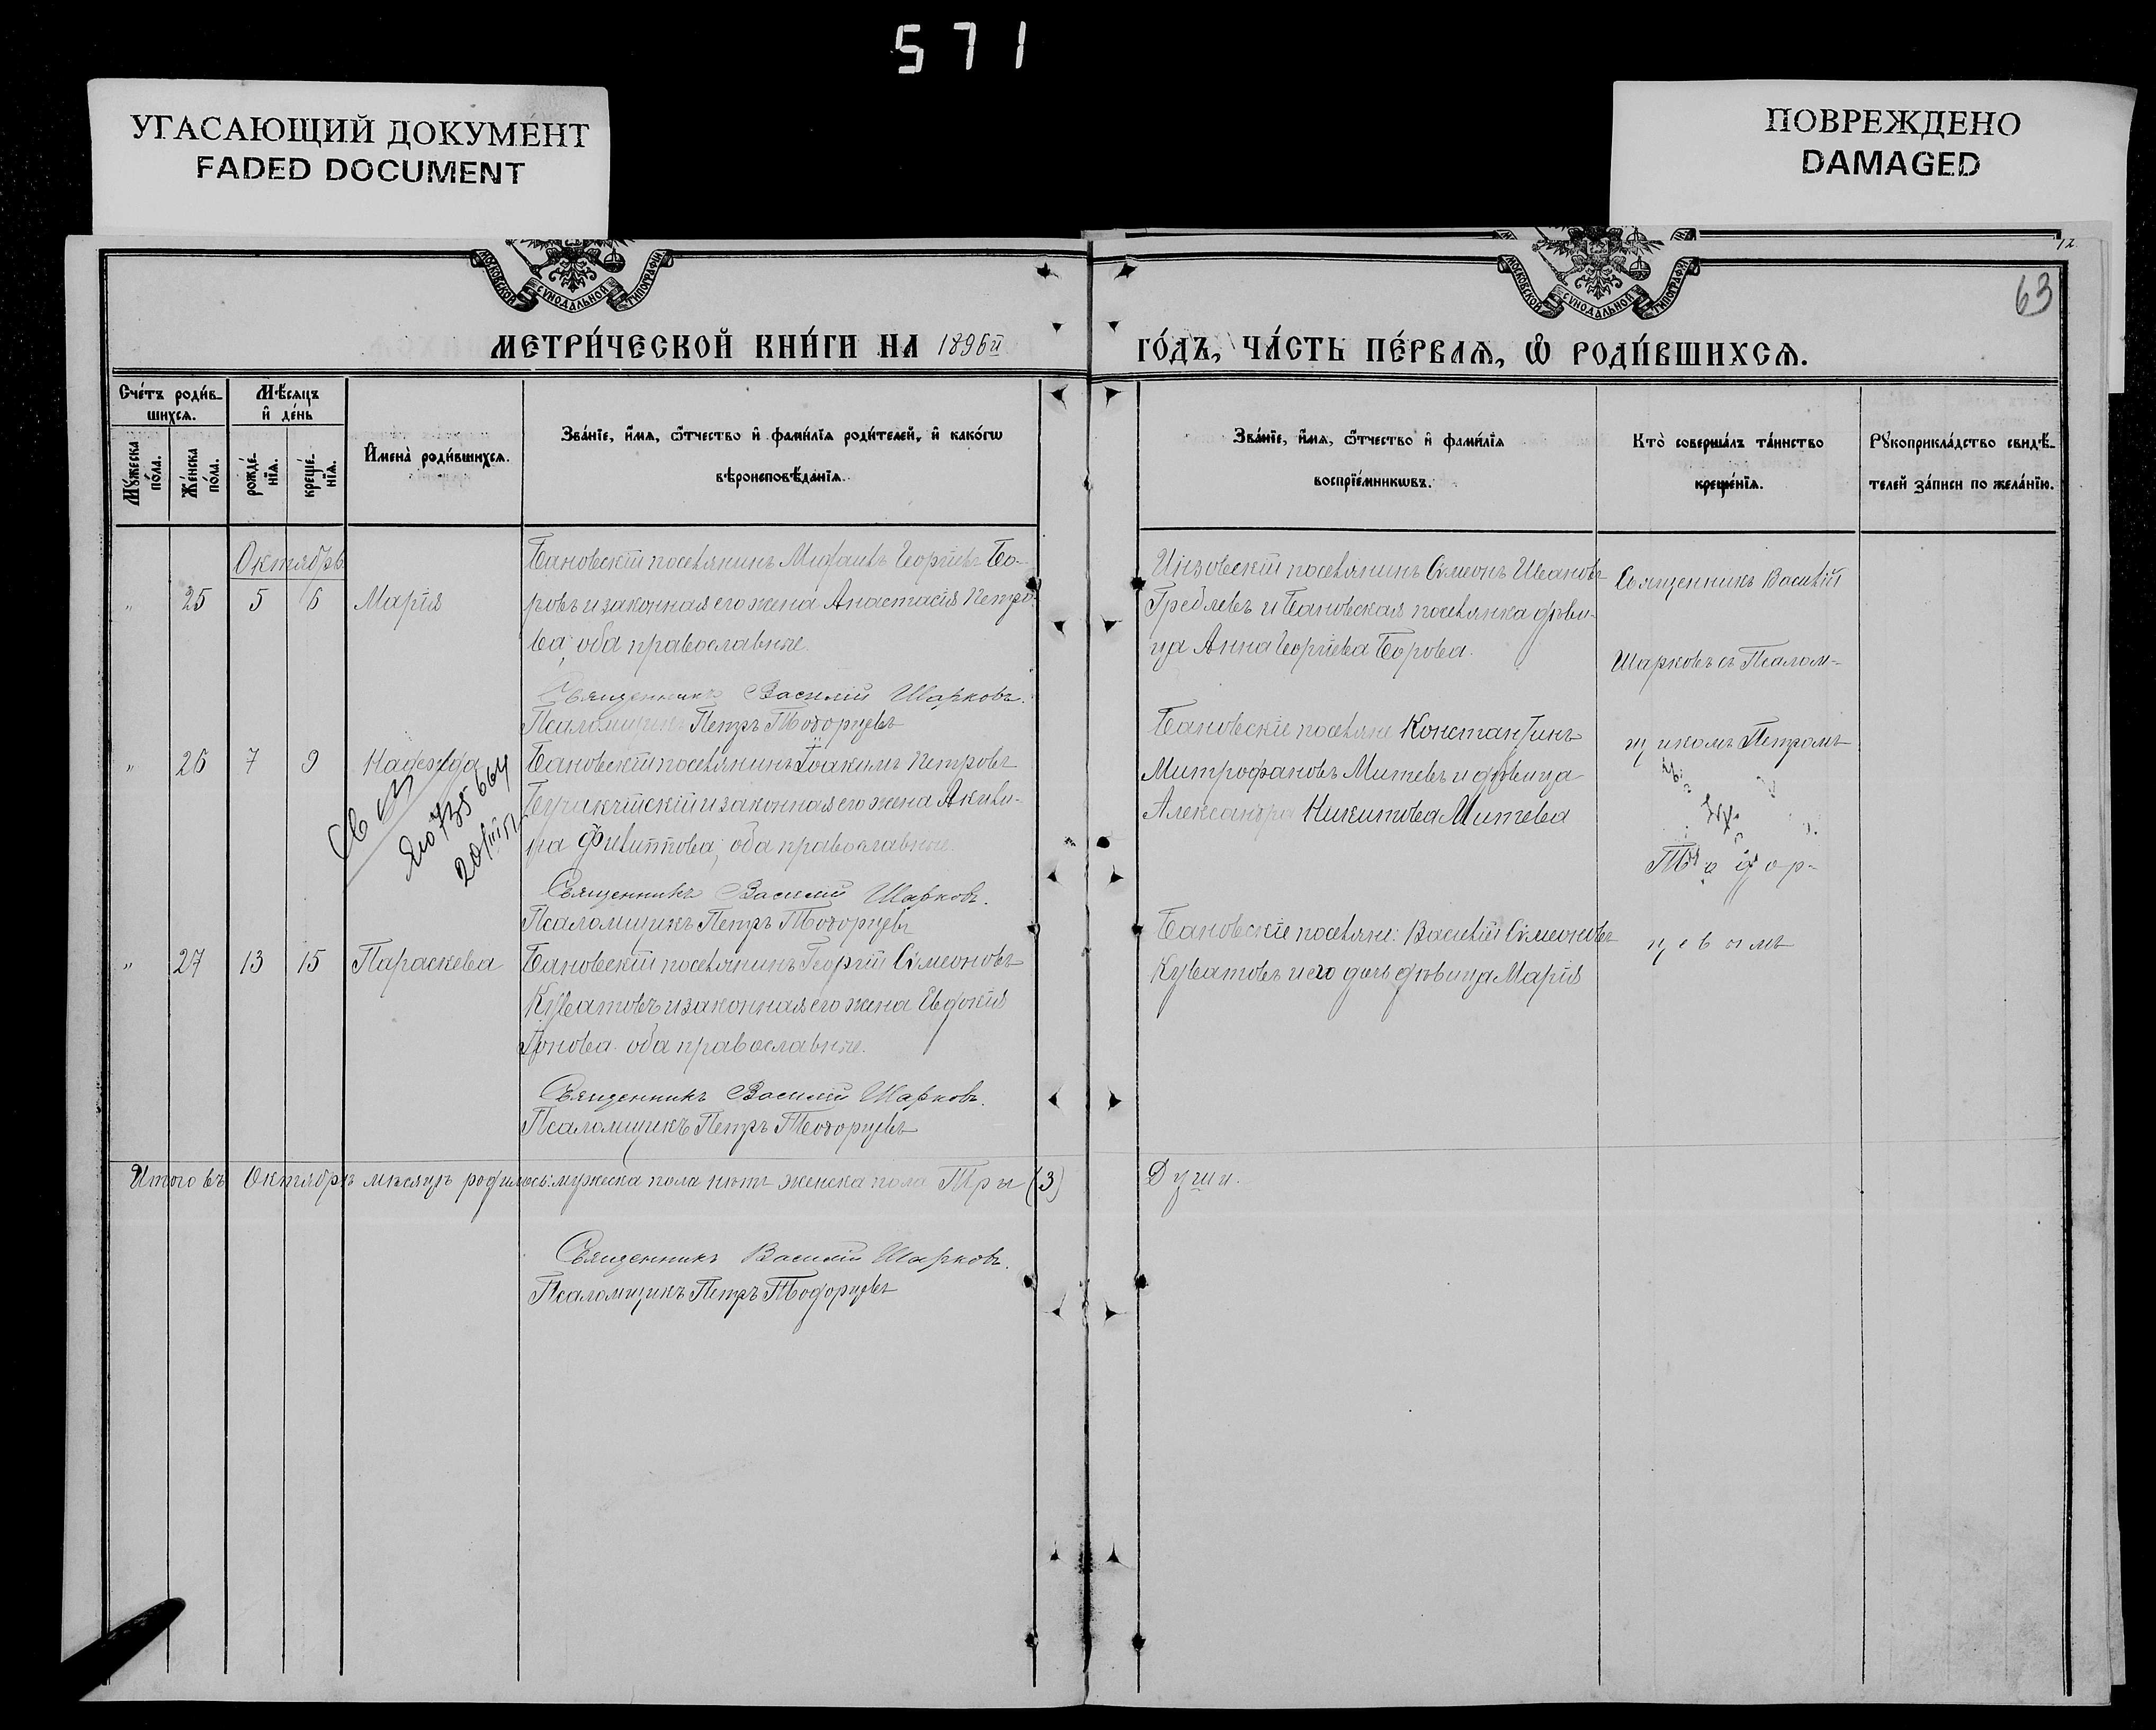 571
УГАСАЮЩИЙ ДОКУМЕНТ
FADED DOCUMENT
ПОВРЕЖДЕНО
DAMAGED
МОСКОВСКОЙ СѴНОДАЛЬНОЙ ТИПОГРАФІИ
МОСКОВСКОЙ СѴНОДАЛЬНОЙ ТИПОГРАФІИ
12
63
МЕТРИ́ЧЕСКОЙ КНИ́ГИ НА 1896й
ГО́ДЪ, ЧА́СТЬ ПЕ́РВАѦ, Ѽ РОДИ́ВШИХСѦ.
Сче́тъ роди́в-
шихсѧ.
Мꙋ́жеска по́ла.
Же́нска по́ла.
Мѣ́сѧцъ
и҆ де́нь
рожде́-нїѧ.
креще́-нїѧ.
И҆мена̀ роди́вшихсѧ.
Зва́нїе, и҆́мѧ, ѻ҆́тчество и҆ фами́лїѧ роди́телей, и҆ како́гѡ
вѣроисповѣ́данїѧ.
Зва́нїе, и҆́мѧ, ѻ҆́тчество и҆ фами́лїѧ
воспрїе́мникѡвъ.
Кто̀ соверша́лъ та́инство
креще́нїѧ.
Рꙋкоприкла́дство свидѣ́-
телей за́писи по жела́нїю.
Октябрь
Бановскій поселянинъ Михаилъ Георгіевъ Бо-
" 25 5 6 Марія ровъ и законная его жена Анастасія Петро-
ва, оба православные.
Священникъ Василій Шарковъ.
Псаломщикъ Петръ Тодорцевъ
Инзовскій поселянинъ Сѵмеонъ Ивановъ
Гредлевъ и Бановская поселянка дѣви-
ца Анна Георгіева Борова.
Священникъ Василій
Шарковъ съ Псалом-
" 26 7 9 Надежда Бановскій поселянинъ Іоакимъ Петровъ
Буракчійскій и законная его жена Акили-
на Филиппова, оба православные.
Св
735664
20/III 51
Священникъ Василій Шарковъ.
Псаломщикъ Петръ Тодорцевъ
Бановскіе поселяне Константинъ
Митрофановъ Митевъ и дѣвица
Александра Никитова Митева
щикомъ Петромъ
Тодор-
" 27 13 15 Параскева Бановскій поселянинъ Георгій Сѵмеоновъ
Куватовъ и законная его жена Евдокія
оба православные.
Священникъ Василій Шарковъ.
Псаломщикъ Петръ Тодорцевъ
Бановскіе поселяне: Василій Сѵмеоновъ
Куватовъ и его дочь дѣвица Марія
цевымъ
Итого въ Октябрѣ мѣсяцѣ родилось: мужеска пола нѣтъ женска пола Три (3) Души.
Священникъ Василій Шарковъ.
Псаломщикъ Петръ Тодорцевъ